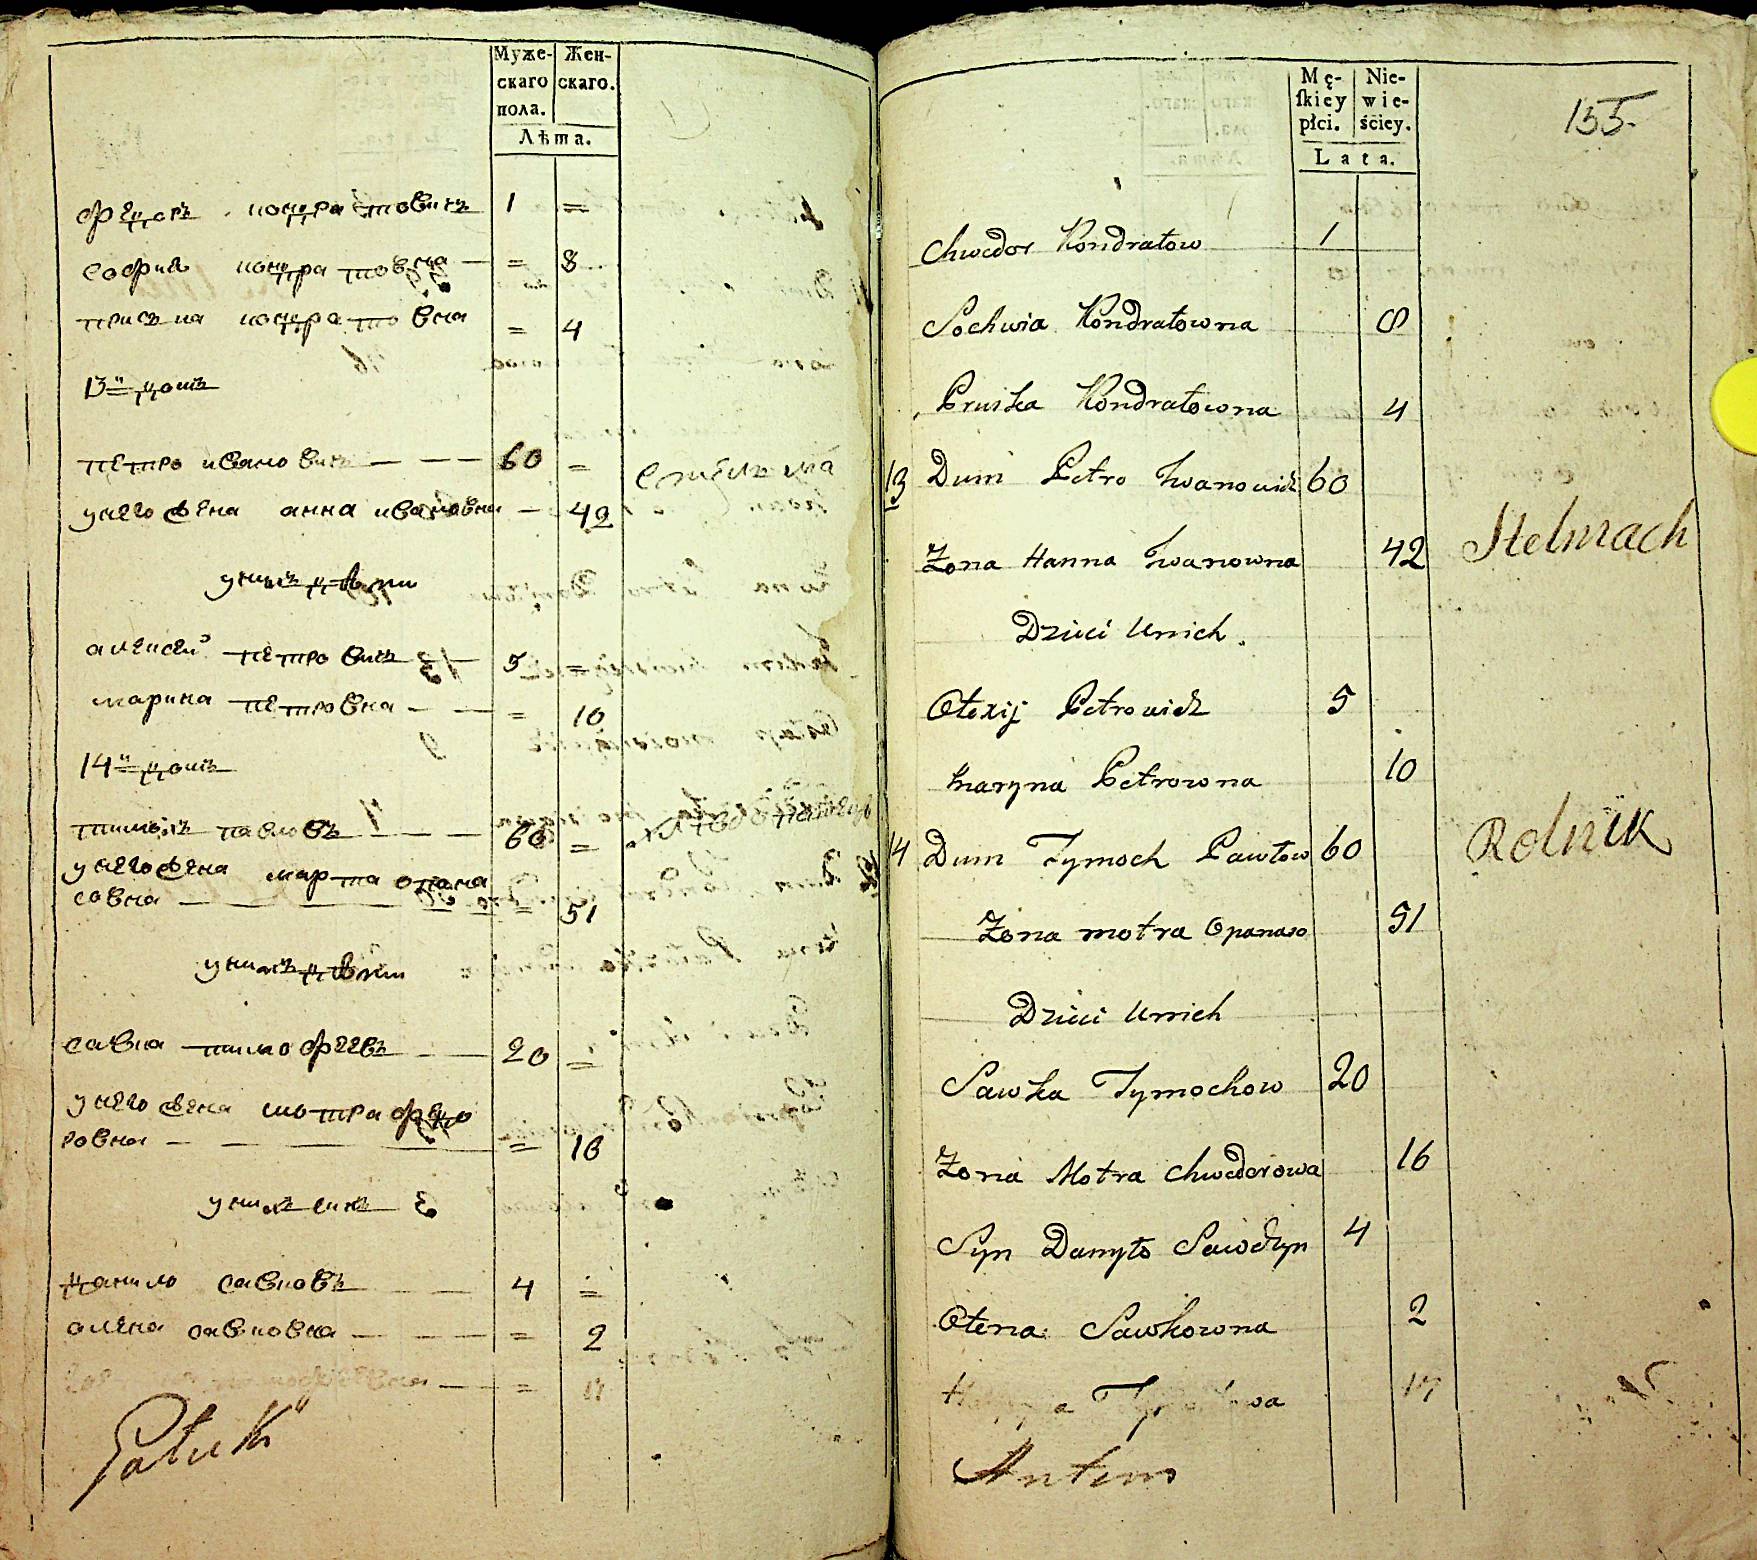 Муже-
скаго
пола.
Жен-
скаго.
Лѣта.
Ѳедоръ кондратовичъ 1 =
софия кондратовна — = 8
приська кондратовна = 4
13й домъ
петро ивановичъ — — — 60 =
унего жена анна ивановна — 42
унихъ дѣти
алексей петровичъ — 5 =
марина петровна — — = 10
14й домъ
тимохъ павловъ — — 60 =
унего жена марта опана
совна — — — = 51
унихъ дѣти
савка тимофеевъ — — 20 =
унего жена мотра федо
ровна — — — = 16
унихъ сынъ
данило савковъ — — 4 =
алена савковна — — — = 2
Mę-
skiey
płci.
Nie-
wie-
ściey.
Lata.
155.
Chwedor Kondratow 1
Sochwia Kondratowna 8
Pruska Kondratowna 4
13 Dum Petro Iwanowicz 60
Żona Hanna Iwanowna 42 Stelmach
Dzieci Unich
Olexij Petrowicz 5
Maryna Petrowna 10
14 Dum Tymoch Pawłow 60 Rolnik
Żona motra Opanaso 51
Dzieci Unich
Sawka Tymochow 20
Żona Motra Chwedorowa 16
Syn Danyło Sawczyn 4
Olena Sawkowna 2
17